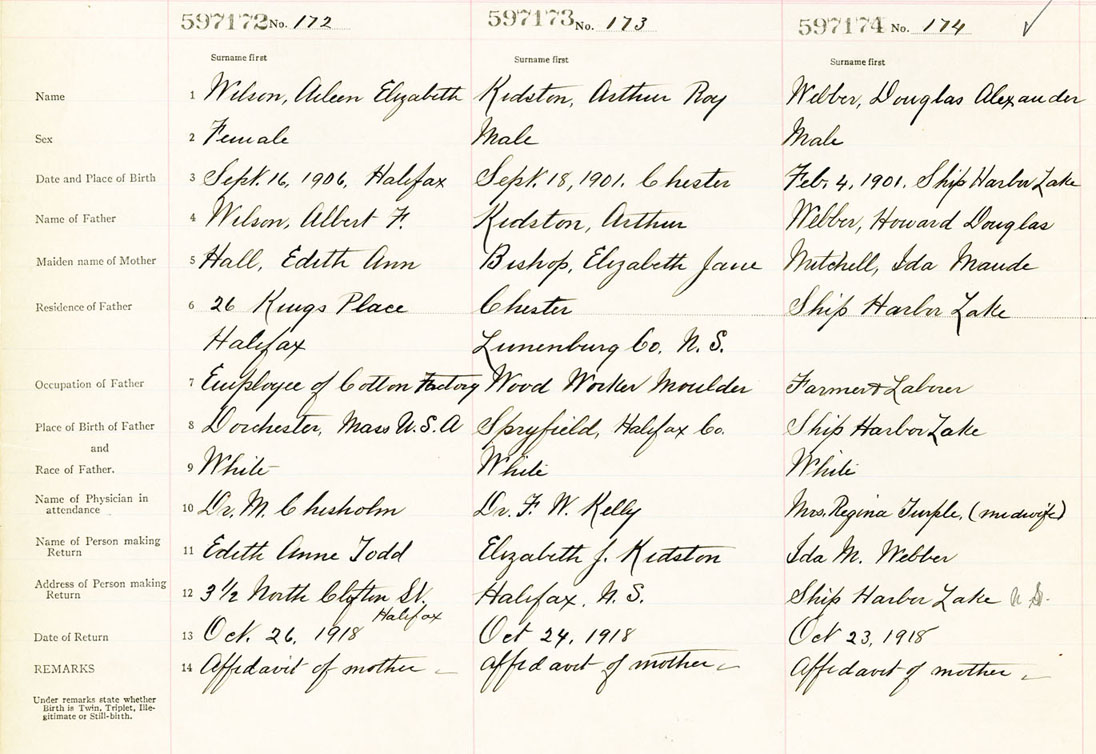 597172 No. 172 597173 No. 173 597174 No. 174
Surname first Surname first Surname first
Name 1 Wilson, Aileen Elizabeth Kidston, Arthur Roy Webber, Douglas Alexander
Sex 2 Female Male Male
Date and Place of Birth 3 Sept. 16, 1906, Halifax Sept. 18, 1901. Chester Feb. 4, 1901. Ship Harbor Lake
Name of Father 4 Wilson, Albert F. Kidston, Arthur Webber, Howard Douglas
Maiden name of Mother 5 Hall, Edith Ann Bishop, Elizabeth Jane Mitchell, Ida Maude
Residence of Father 6 26 Kings Place Chester Ship Harbor Lake
Halifax Lunenburg Co. N.S.
Occupation of Father 7 Employee of Cotton Factory Wood Worker Moulder Farmer & Laborer
Place of Birth of Father 8 Dorchester, Mass U.S.A Spryfield, Halifax Co. Ship Harbor Lake
and
Race of Father. 9 White White White
Name of Physician in
attendance 10 Dr. M. Chisholm Dr. F. W. Kelly Mrs. Regina Turple, (midwife)
Name of Person making
Return 11 Edith Anne Todd Elizabeth J. Kidston Ida M. Webber
Address of Person making
Return 12 3 1/2 North Clifton St. Halifax, N.S. Ship Harbor Lake N.S.
Halifax
Date of Return 13 Oct. 26, 1918 Oct 24, 1918 Oct 23, 1918
REMARKS 14 Affidavit of mother Affidavit of mother Affidavit of mother
Under remarks state whether
Birth is Twin, Triplet, Ille-
gitimate or Still-birth.